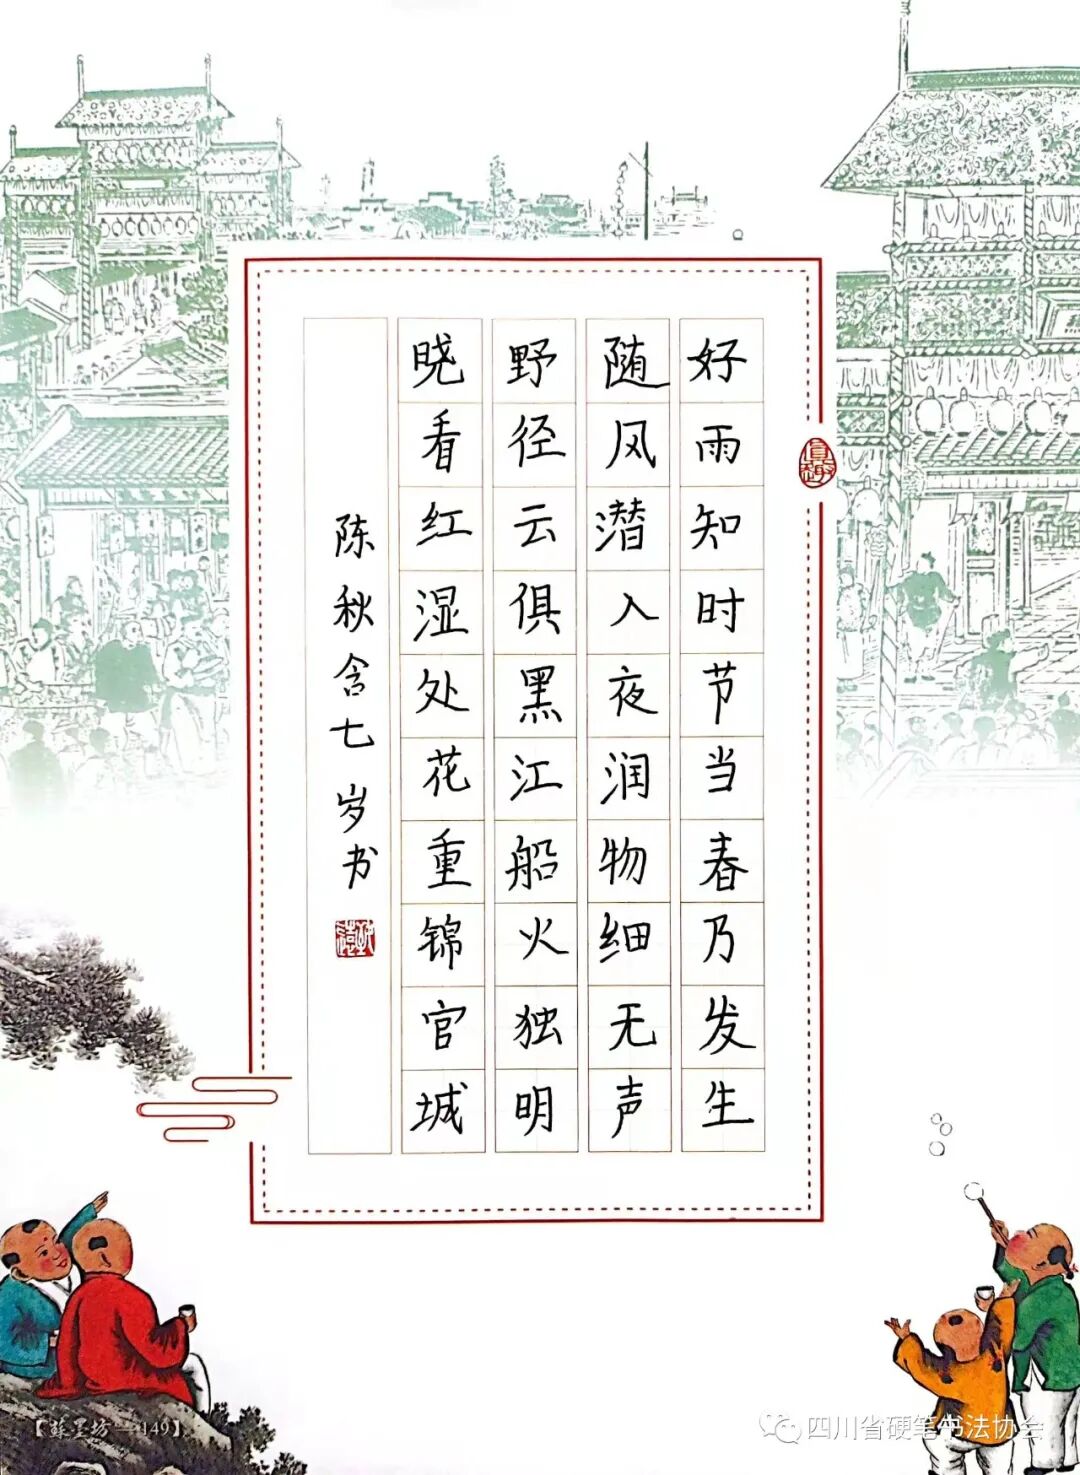 好雨知时节当春乃发生
随风潜入夜润物细无声
野径云俱黑江船火独明
晓看红湿处花重锦官城
陈秋含七岁书
【苏墨坊—149】
四川省硬笔书法协会